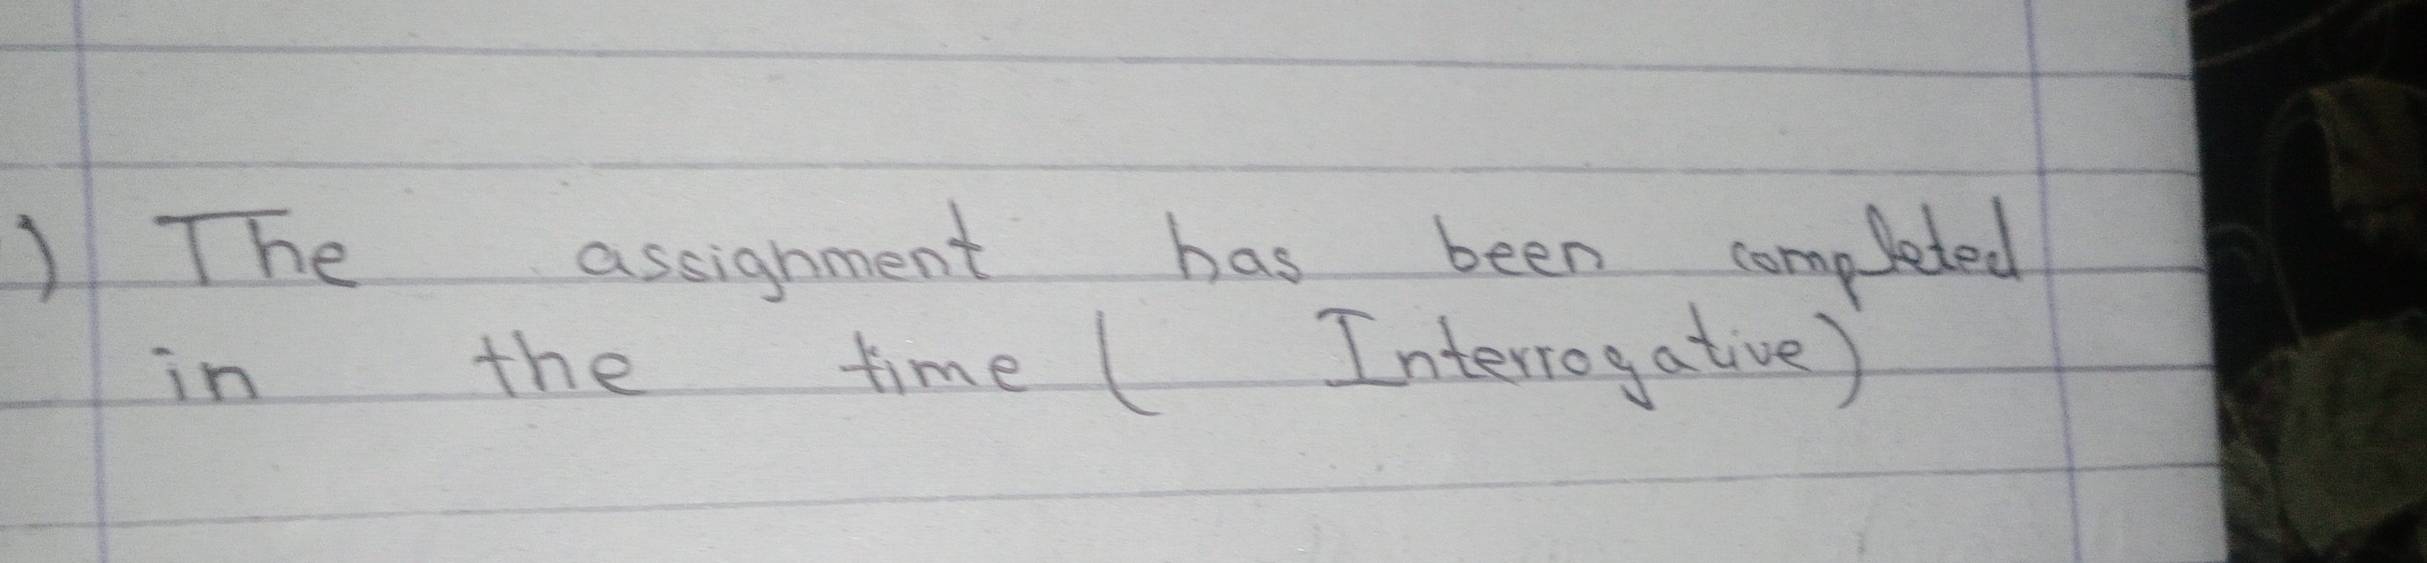 ) The assignment has been completed
in the time ( Interrogative)